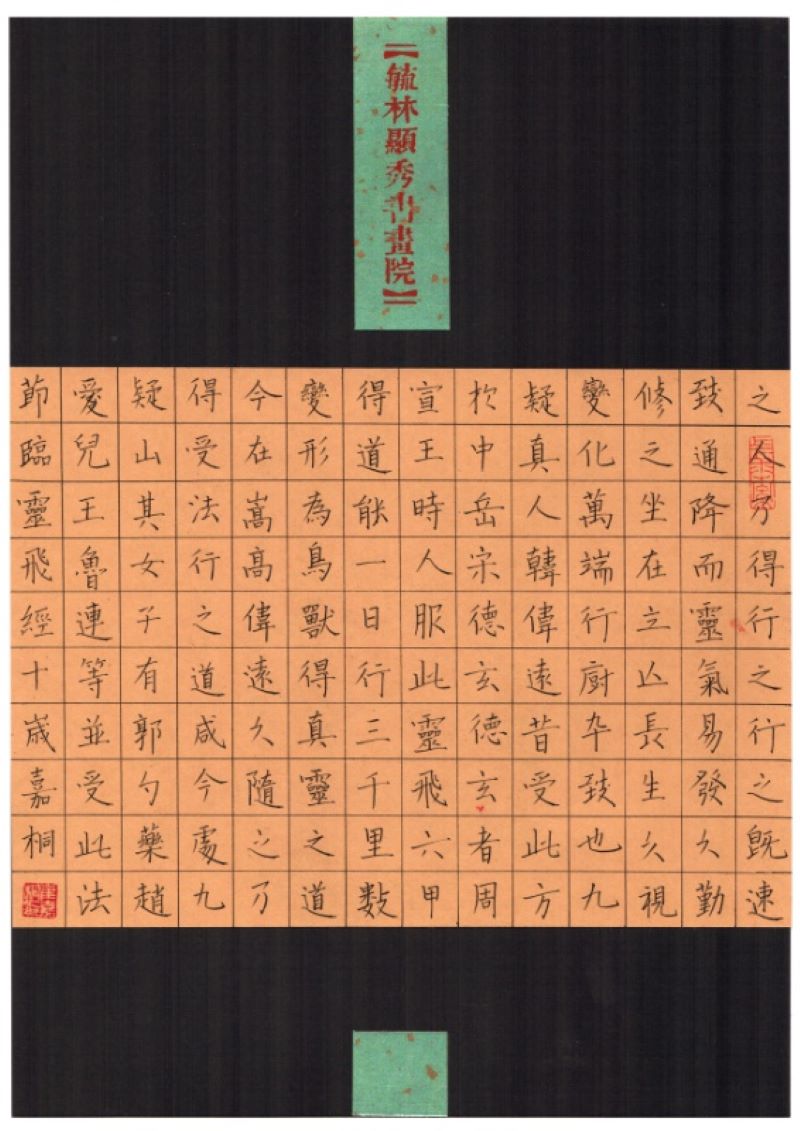 【毓林顯秀書畫院】
之人乃得行之行之既速
致通降而靈氣易發久勤
修之坐在立亡長生久視
變化萬端行廚卒致也九
疑真人韓偉遠昔受此方
於中岳宋德玄德玄者周
宣王時人服此靈飛六甲
得道能一日行三千里數
變形為鳥獸得真靈之道
今在嵩高偉遠久隨之乃
得受法行之道咸今處九
疑山其女子有郭勺藥趙
愛兒王魯連等並受此法
節臨靈飛經十歲嘉桐